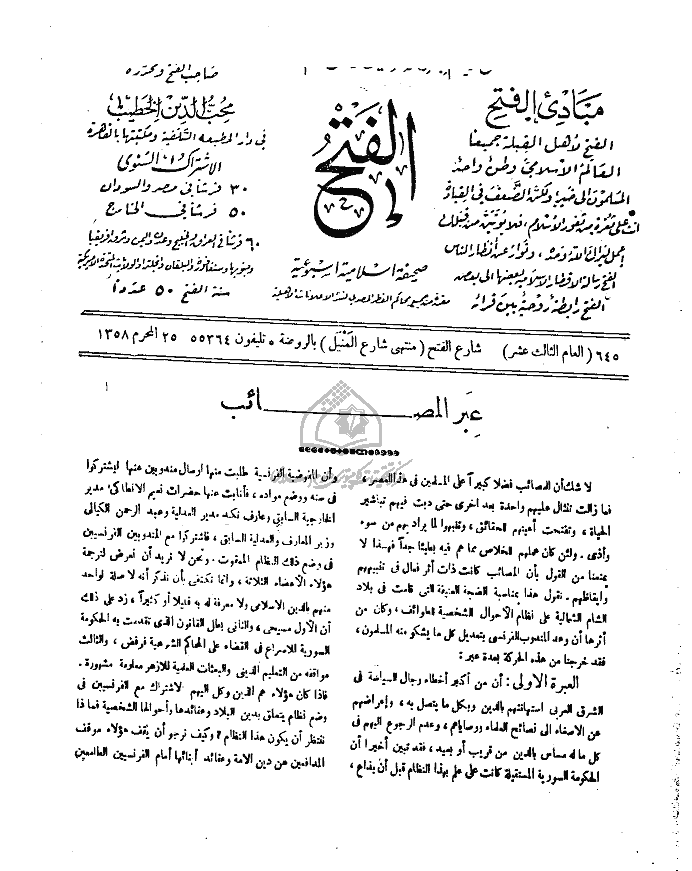 مبادئ الفتح
الفتح لأهل القبلة جميعا
العالم الاسلامي وطن واحد
المسلمون الى خير ولكن الضعف في القيادة
انت على ثغرة من ثغور الاسلام، فلا يؤتين من قبلك
الفتح رسالة الاقطار الاسلامية بعضها الى بعض
الفتح رابطة روحية بين قرائه
الفتح
صحيفة اسلامية اسبوعية
صاحب الفتح ومحرره
محب الدين الخطيب
في دار المطبعة السلفية ومكتبتها بالقاهرة
الاشتراك السنوي
٣٠ قرشا في مصر والسودان
٥٠ قرشا في الخارج
سنة الفتح ٥٠ عددا
٦٤٥ ( العام الثالث عشر ) شارع الفتح ( منتهى شارع المنيل ) بالروضة ، تليفون ٥٥٣٦٤ ٢٥ المحرم ١٣٥٨
عبر المصائب
لا شك أن المصائب فضلا كبيراً على المسلمين في هذا العصر ،
فما زالت تنثال عليهم واحدة بعد اخرى حتى دبت فيهم تباشير
الحياة ، وتفتحت أعينهم للحقائق ، وتنبهوا لما يراد بهم من سوء
وأذى . ولئن كان عملهم للخلاص مما هم فيه بطيئا جداً فهذا لا
يمنعنا من القول بأن المصائب كانت ذات أثر فعال في تنبيههم
وايقاظهم . نقول هذا بمناسبة الضجة العنيفة التي قامت في بلاد
الشام الشمالية على نظام الأحوال الشخصية للطوائف ، وكان من
أثرها أن وعد المندوب الفرنسي بتعديل كل ما يشكو منه المسلمون ،
فقد خرجنا من هذه الحركة بعدة عبر :
العبرة الاولى : أن من أكبر أخطاء رجال السياسة في
الشرق العربي استهانتهم بالدين وبكل ما يتصل به ، وإعراضهم
عن الاصغاء الى نصائح العلماء ووصاياهم ، وعدم الرجوع اليهم في
كل ما له مساس بالدين من قريب أو بعيد ، فقد تبين أخيراً أن
الحكومة السورية المستقيلة كانت على علم بهذا النظام قبل أن يذاع ،
وأن المفوضية الفرنسية طلبت منها ارسال مندوبين عنها ليشتركوا
في سنه ووضع مواده ، فأنابت عنها حضرات نعيم الانطاكي مدير
الخارجية السابق وعارف نكد مدير العدلية وعبد الرحمن الكيالي
وزير المعارف والعدلية السابق ، فاشتركوا مع المندوبين الفرنسيين
في وضع ذلك النظام الممقوت . ونحن لا نريد أن نعرض لترجمة
هؤلاء الأعضاء الثلاثة ، وانما نكتفي بأن نذكر أنه لا صلة لواحد
منهم بالدين الاسلامي ولا معرفة له به قليلا أو كثيراً ، زد على ذلك
أن الأول مسيحي ، والثاني القانون الذي تقدمت به الحكومة
السورية للاسراع في القضاء على المحاكم الشرعية فرفض ، والثالث
مواقفه من التعليم الديني والبعثات العلمية للازهر معلومة مشهورة .
فاذا كان هؤلاء هم الذين وكل اليهم الاشتراك مع الفرنسيين في
وضع نظام يتعلق بدين البلاد وعقائدها وأحوالها الشخصية فماذا
ننتظر أن يكون هذا النظام ؟ وكيف نرجو أن يقف هؤلاء موقف
المدافعين عن دين الامة وعقائد أبنائها أمام الفرنسيين الطامعين